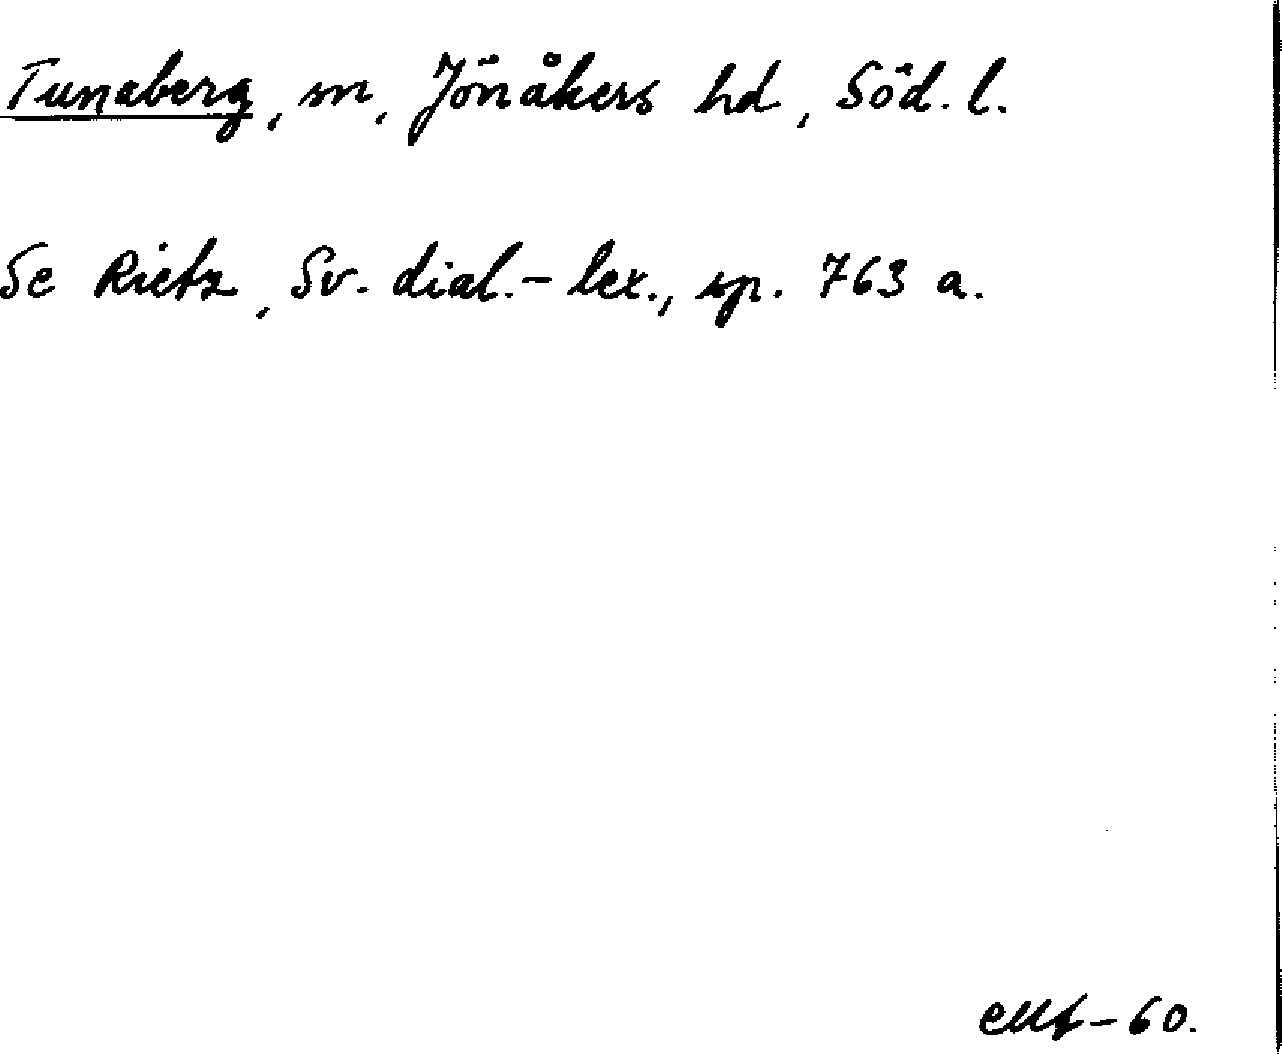 Tunaberg, sn, Jönåkers hd, Söd. l.
Se Rietz, Sv. dial.-lex., sp. 763 a.
-60.